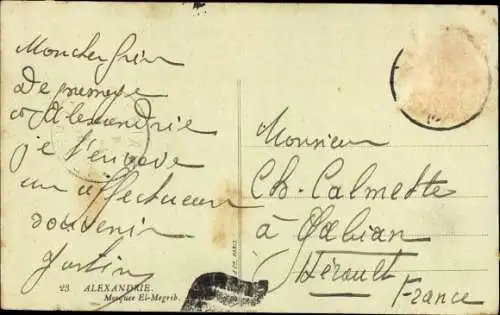 Mon cher
De
d'Alexandrie
je t'envoie
un affectueux
souvenir
Justin
23 ALEXANDRIE.
Mosquée El-Megrib.
Monsieur
Ch. Calmette
à Gabian
Hérault
France